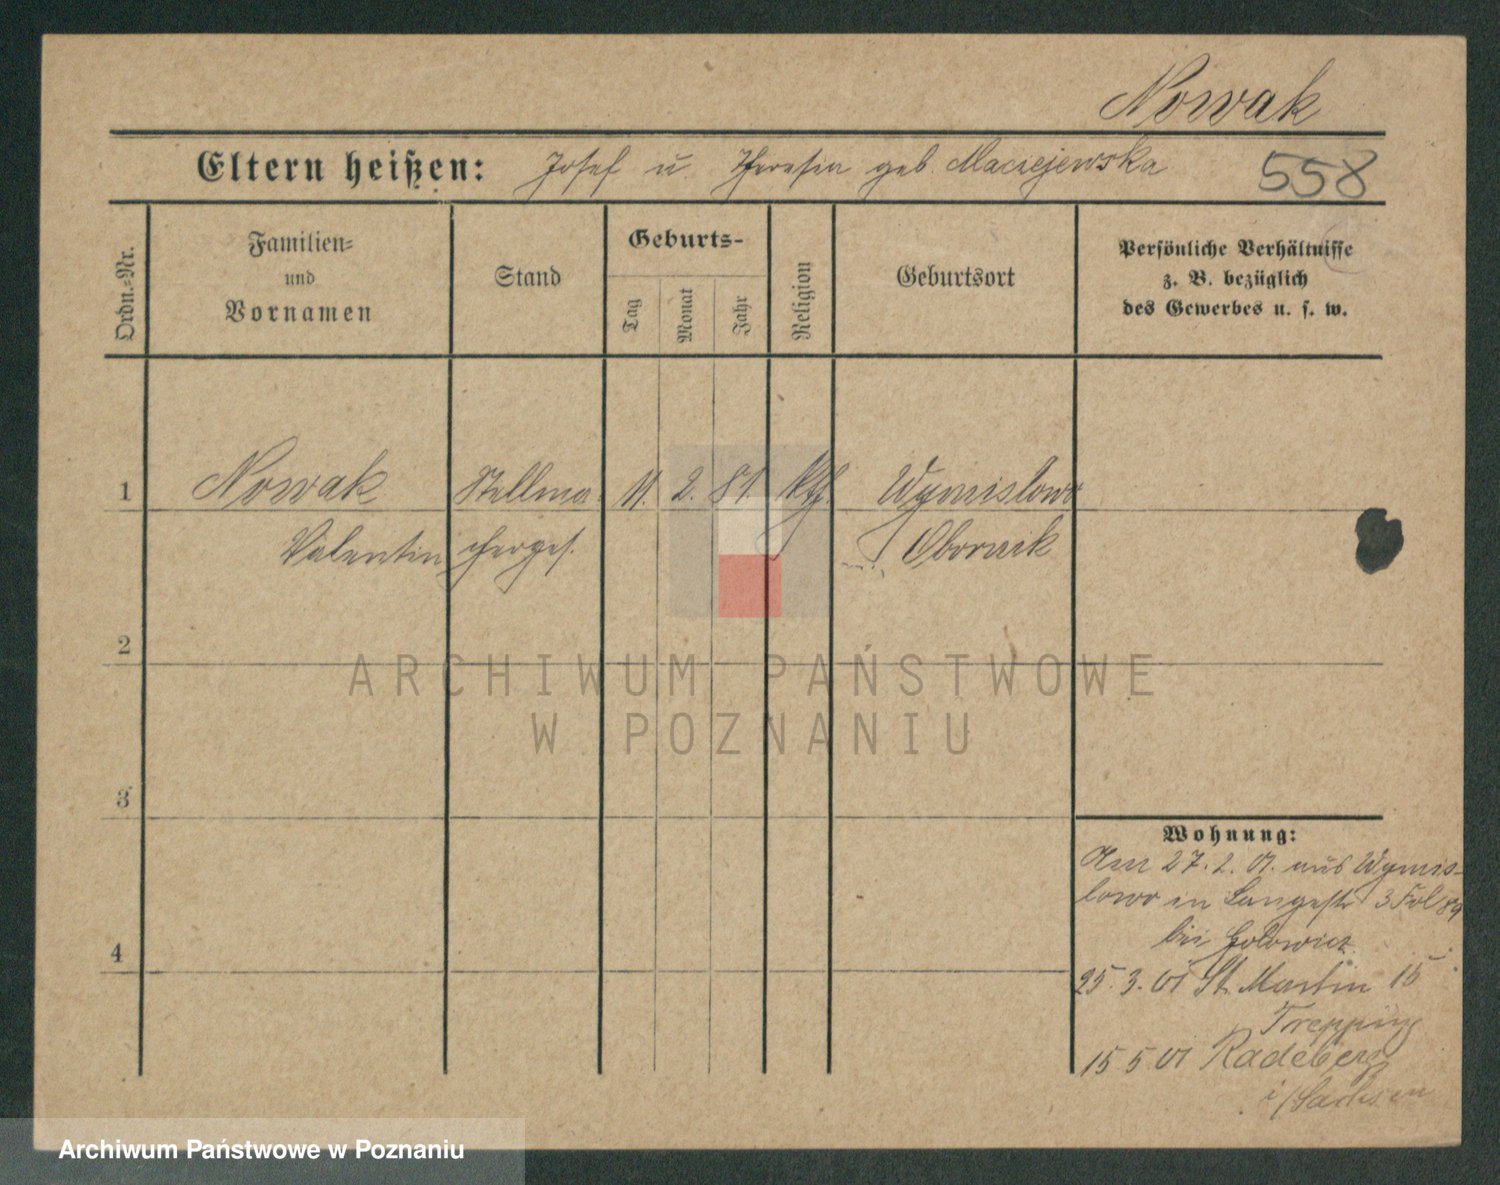 Nowak
Eltern heißen: Josef u. Theresia geb. Maciejewska
558
Ordn.-Nr.
Familien-
und
Vornamen
Stand
Geburts-
Tag
Monat
Jahr
Religion
Geburtsort
Persönliche Verhältnisse
z. B. bezüglich
des Gewerbes u. s. w.
1 Nowak Stellma- 11. 2. 81. kth. Wymislowo
Valentin cherges. Obornik
2
3
4
Wohnung:
Am 27.2.01. aus Wymis-
lowo in Langestr 3 Fol 89
bei
25.3.01 St. Martin 15
15 5 01 Radeberg
i/Sachsen
ARCHIWUM PAŃSTWOWE
W POZNANIU
Archiwum Państwowe w Poznaniu